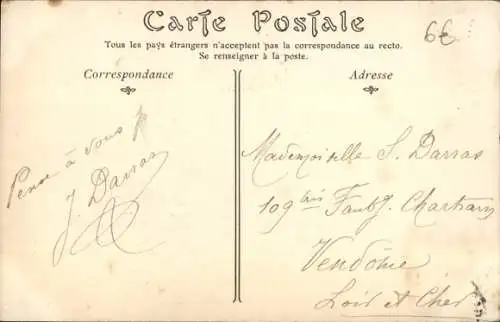 Carte Postale
Tous les pays étrangers n'acceptent pas la correspondance au recto.
Se renseigner à la poste.
Correspondance
Adresse
6€
Pense à vous
J. Darras
Mademoiselle S. Darras
109 bis Faubg. Chartrain
Vendôme
Loir et Cher